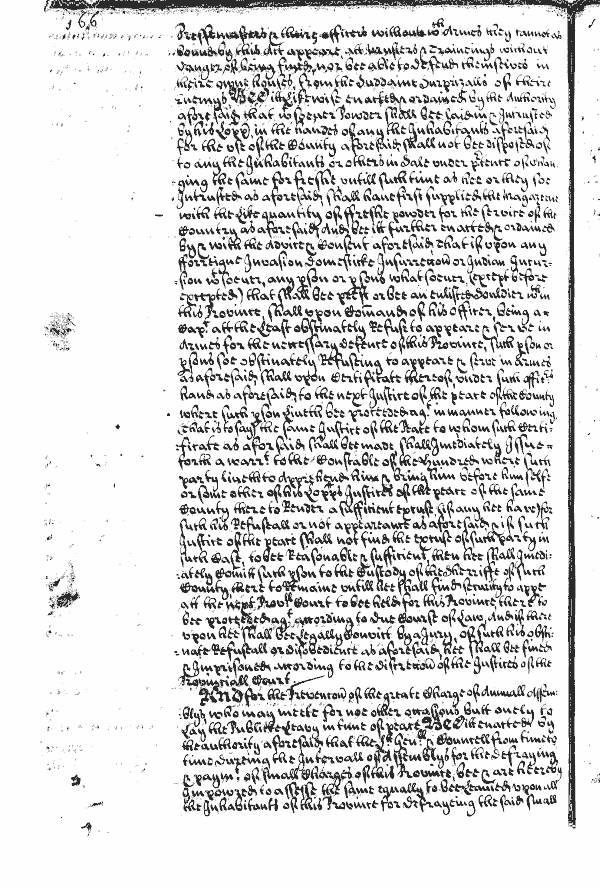 166
Pressemasters & theire officers without wch Armes they cannot as
bound by this Act appeare att Musters & Traineings without
danger of being fined, nor bee able to defend themselves in
theire owne houses, from the Suddaine Surprizalls of theire
Enemys BEE itt Likewise enacted & ordained by the Authority
aforesaid that wtsoever Powder shall bee Laid in & Intrusted
by his Lopp in the hands of any the Inhabitants aforesaid
for the use of the County aforesaid shall not bee disposed of
to any the Inhabitants or others in Sale under ptence of chan-
ging the same for freshe untill such time as hee or they soe
Intrusted as aforesaid shall have first supplied the Magazene
with the Like quantity of ffreshe powder for the service of the
Country as aforesaid And bee itt further enacted & ordained
by & with the advice & Consent aforesaid that if upon any
fforreigne Invasion Domesticke Insurreccon or Indian Incur-
sion wtsoever, any pson or psons whatsoever (except before
excepted) that shall bee prest or bee an enlisted Souldier wthin
this Province, shall upon Comand of his officer, being a
Capt att the Least obstinately Refuse to appeare & serve in
Armes for the necessary defence of this Province, such pson or
psons soe obstinately Refusing to appeare & serve in Armes
as aforesaid shall upon Certificate thereof under such officrs
hand as aforesaid to the next Justice of the peace of the County
where such pson Liveth bee proceeded agt in manner following
that is to say the same Justice of the Peace to whom such Certi-
ficate as aforesaid shall bee made shall Imediately Issue
forth a warrt to the Constable of the Hundred where such
party liveth to apprehend him & bring him before himselfe
or some other of his Lopps Justices of the peace of the same
County there to Render a sufficient excuse (if any hee have) for
such his Refusall or not appeareance as aforesaid & if such
Justice of the peace shall not find the excuse of such party in
such Case, to bee Reasonable & sufficient, then hee shall Imedi-
ately Comitt such pson to the Custody of the Sherriffe of such
County there to Remaine untill hee shall find security to appe
att the next Provll Court to bee held for this Province there to
bee proceeded agt according to due Course of Law, And if there
upon hee shall bee Legally Convict by a Jury, of such his obsti-
nate Refusall or disobedience as aforesaid, hee shall bee fined
& Imprisoned according to the discretion of the Justices of the
Provinciall Court
And for the Prevencon of the greate Charge of Annuall Assem-
blys who may meete for noe other occasions butt onely to
Lay the Publike Leavy in time of peace BEE itt enacted by
the authority aforesaid that the Lt Genll & Councell from time to
time, dureing the Intervall of Assemblys for the defraying
& paymt of small Charges of this Province, bee & are hereby
Impowred to assesse the same equally to bee Leavied upon all
the Inhabitants of this Province for defrayeing the said small